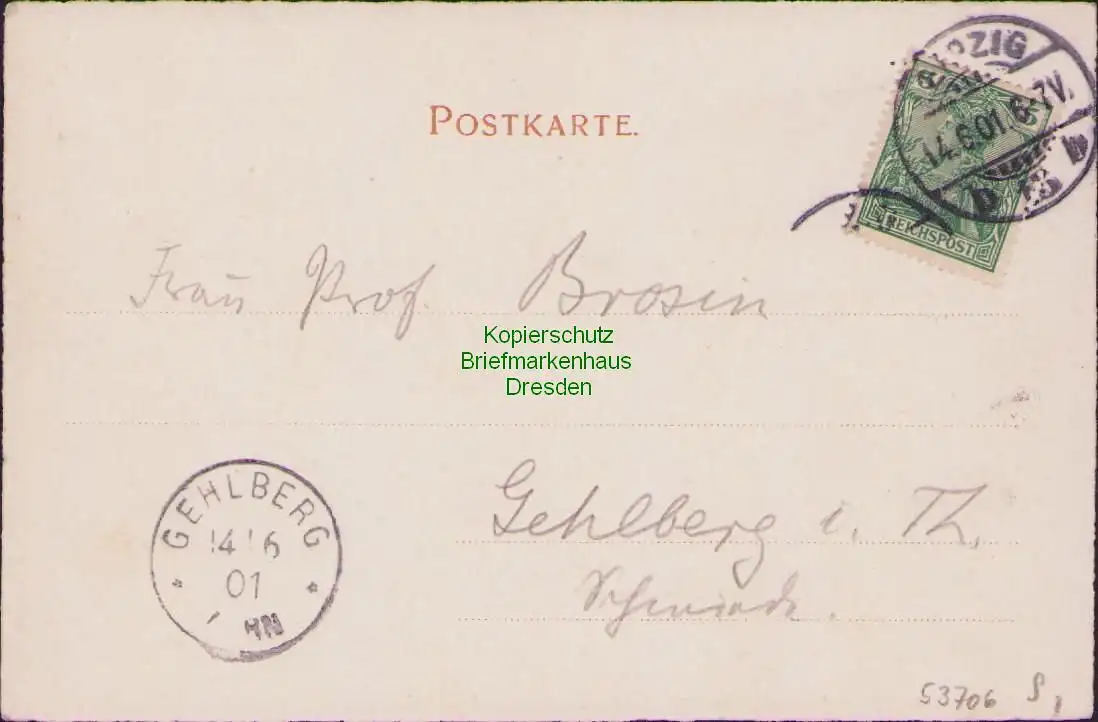 POSTKARTE.
LEIPZIG
14.6.01.6-7V.
REICHSPOST
Frau Prof. Brosin
Kopierschutz
Briefmarkenhaus
Dresden
Gehlberg i. Th.
GEHLBERG
14 6
01
53706 S 1